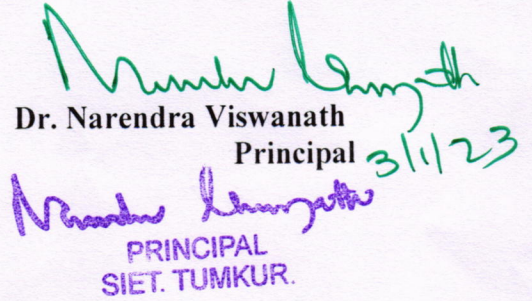 Narendra Viswanath
Dr. Narendra Viswanath
Principal 3/1/23
Narendra Viswanath
PRINCIPAL
SIET. TUMKUR.